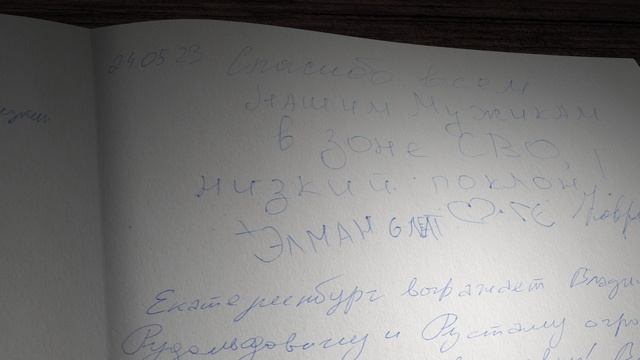 24.05.23 Спасибо всем
нашим мужикам
в зоне СВО,
низкий поклон!
ЭЛМАН 6 ЛЕТ
Екатеринбург выражает
Рудольфовичу и Рустаму